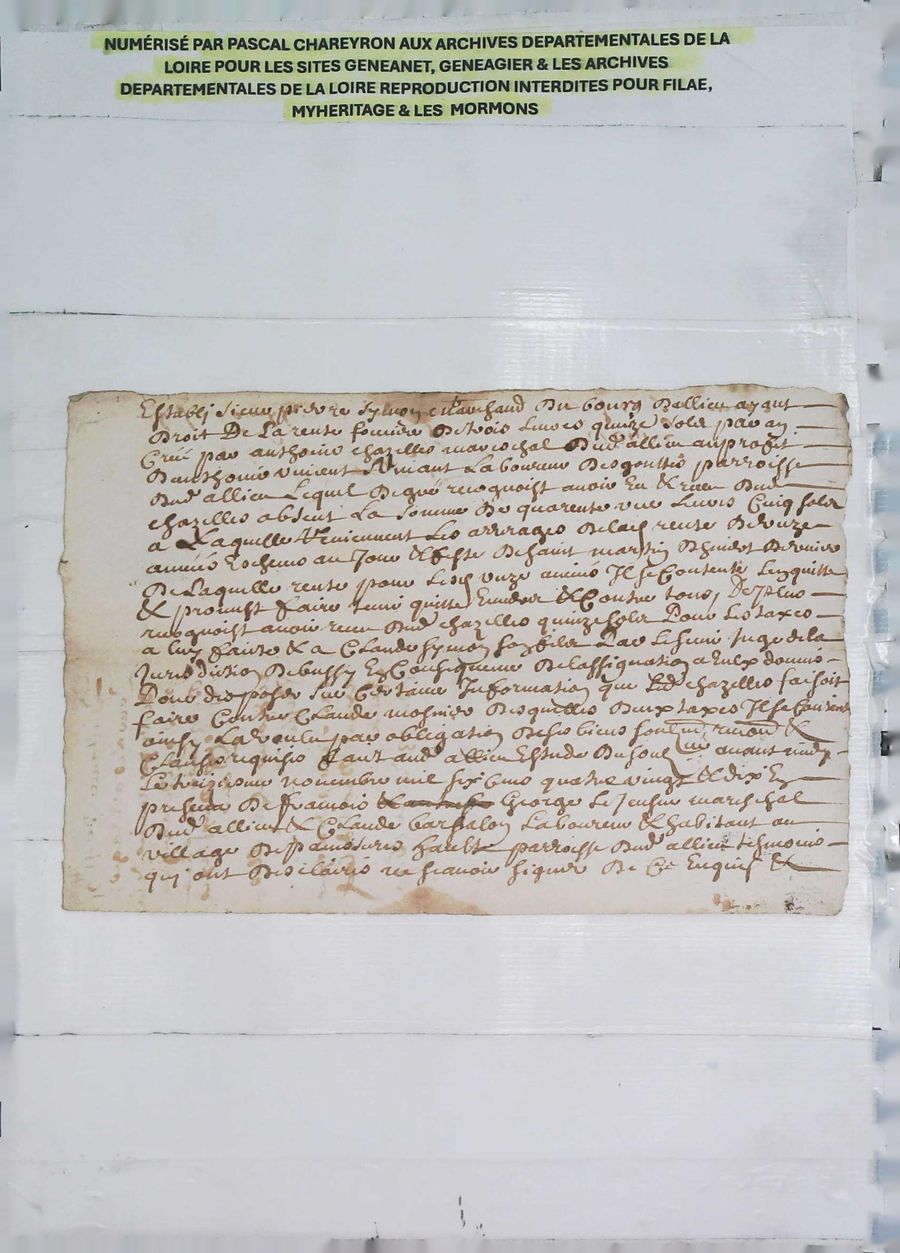 NUMÉRISÉ PAR PASCAL CHAREYRON AUX ARCHIVES DEPARTEMENTALES DE LA
LOIRE POUR LES SITES GENEANET, GENEAGIER & LES ARCHIVES
DEPARTEMENTALES DE LA LOIRE REPRODUCTION INTERDITES POUR FILAE,
MYHERITAGE & LES MORMONS
Establi sieur pierre symon marchand du bourg dallieu ayant
droit de la rente fonciere de trois livres quinze sols par an
Creé par anthoine chazelles mareschal dud allieu au profit
danthoine vincent vivant laboureur parroisse
dud allieu lequel de gré recognoist avoir eu & receu dud
chazelles absent la somme de quarente une livres Cinq sols
a laquelle reviennent les arrerages de lad rente de unze
années escheus au Jour & feste de saint martin dernier
de laquelle rente pour lesd unze années Il se Contente len quitte
& promest faire tenir quitte Envers & Contre tous, de plus
recognoist avoir receu dud chazelles quinze sols pour les taxes
a luy faite & a Claude symon par le sieur Juge de la
Jurisdiction de bussy En Consequence de lassignation a Eulx donnée
pour desposer sur Certaine Information que led chazelles faisoit
faire Contre Claude mosnier desquelles deux taxes Il se Contente
ainsy la voulu par obligation de ses biens &
Clauses requises fait aud allieu Estude de avant midy
Le treizieme novembre mil six Cens quatre vingt & dix En
presence de francois George le Jeusne mareschal
dud allieu & Claude barjalon laboureur & habitant au
village de haulte parroisse dud allieu tesmoins
qui ont desclairés ne scavoir signer de Ce Enquis &